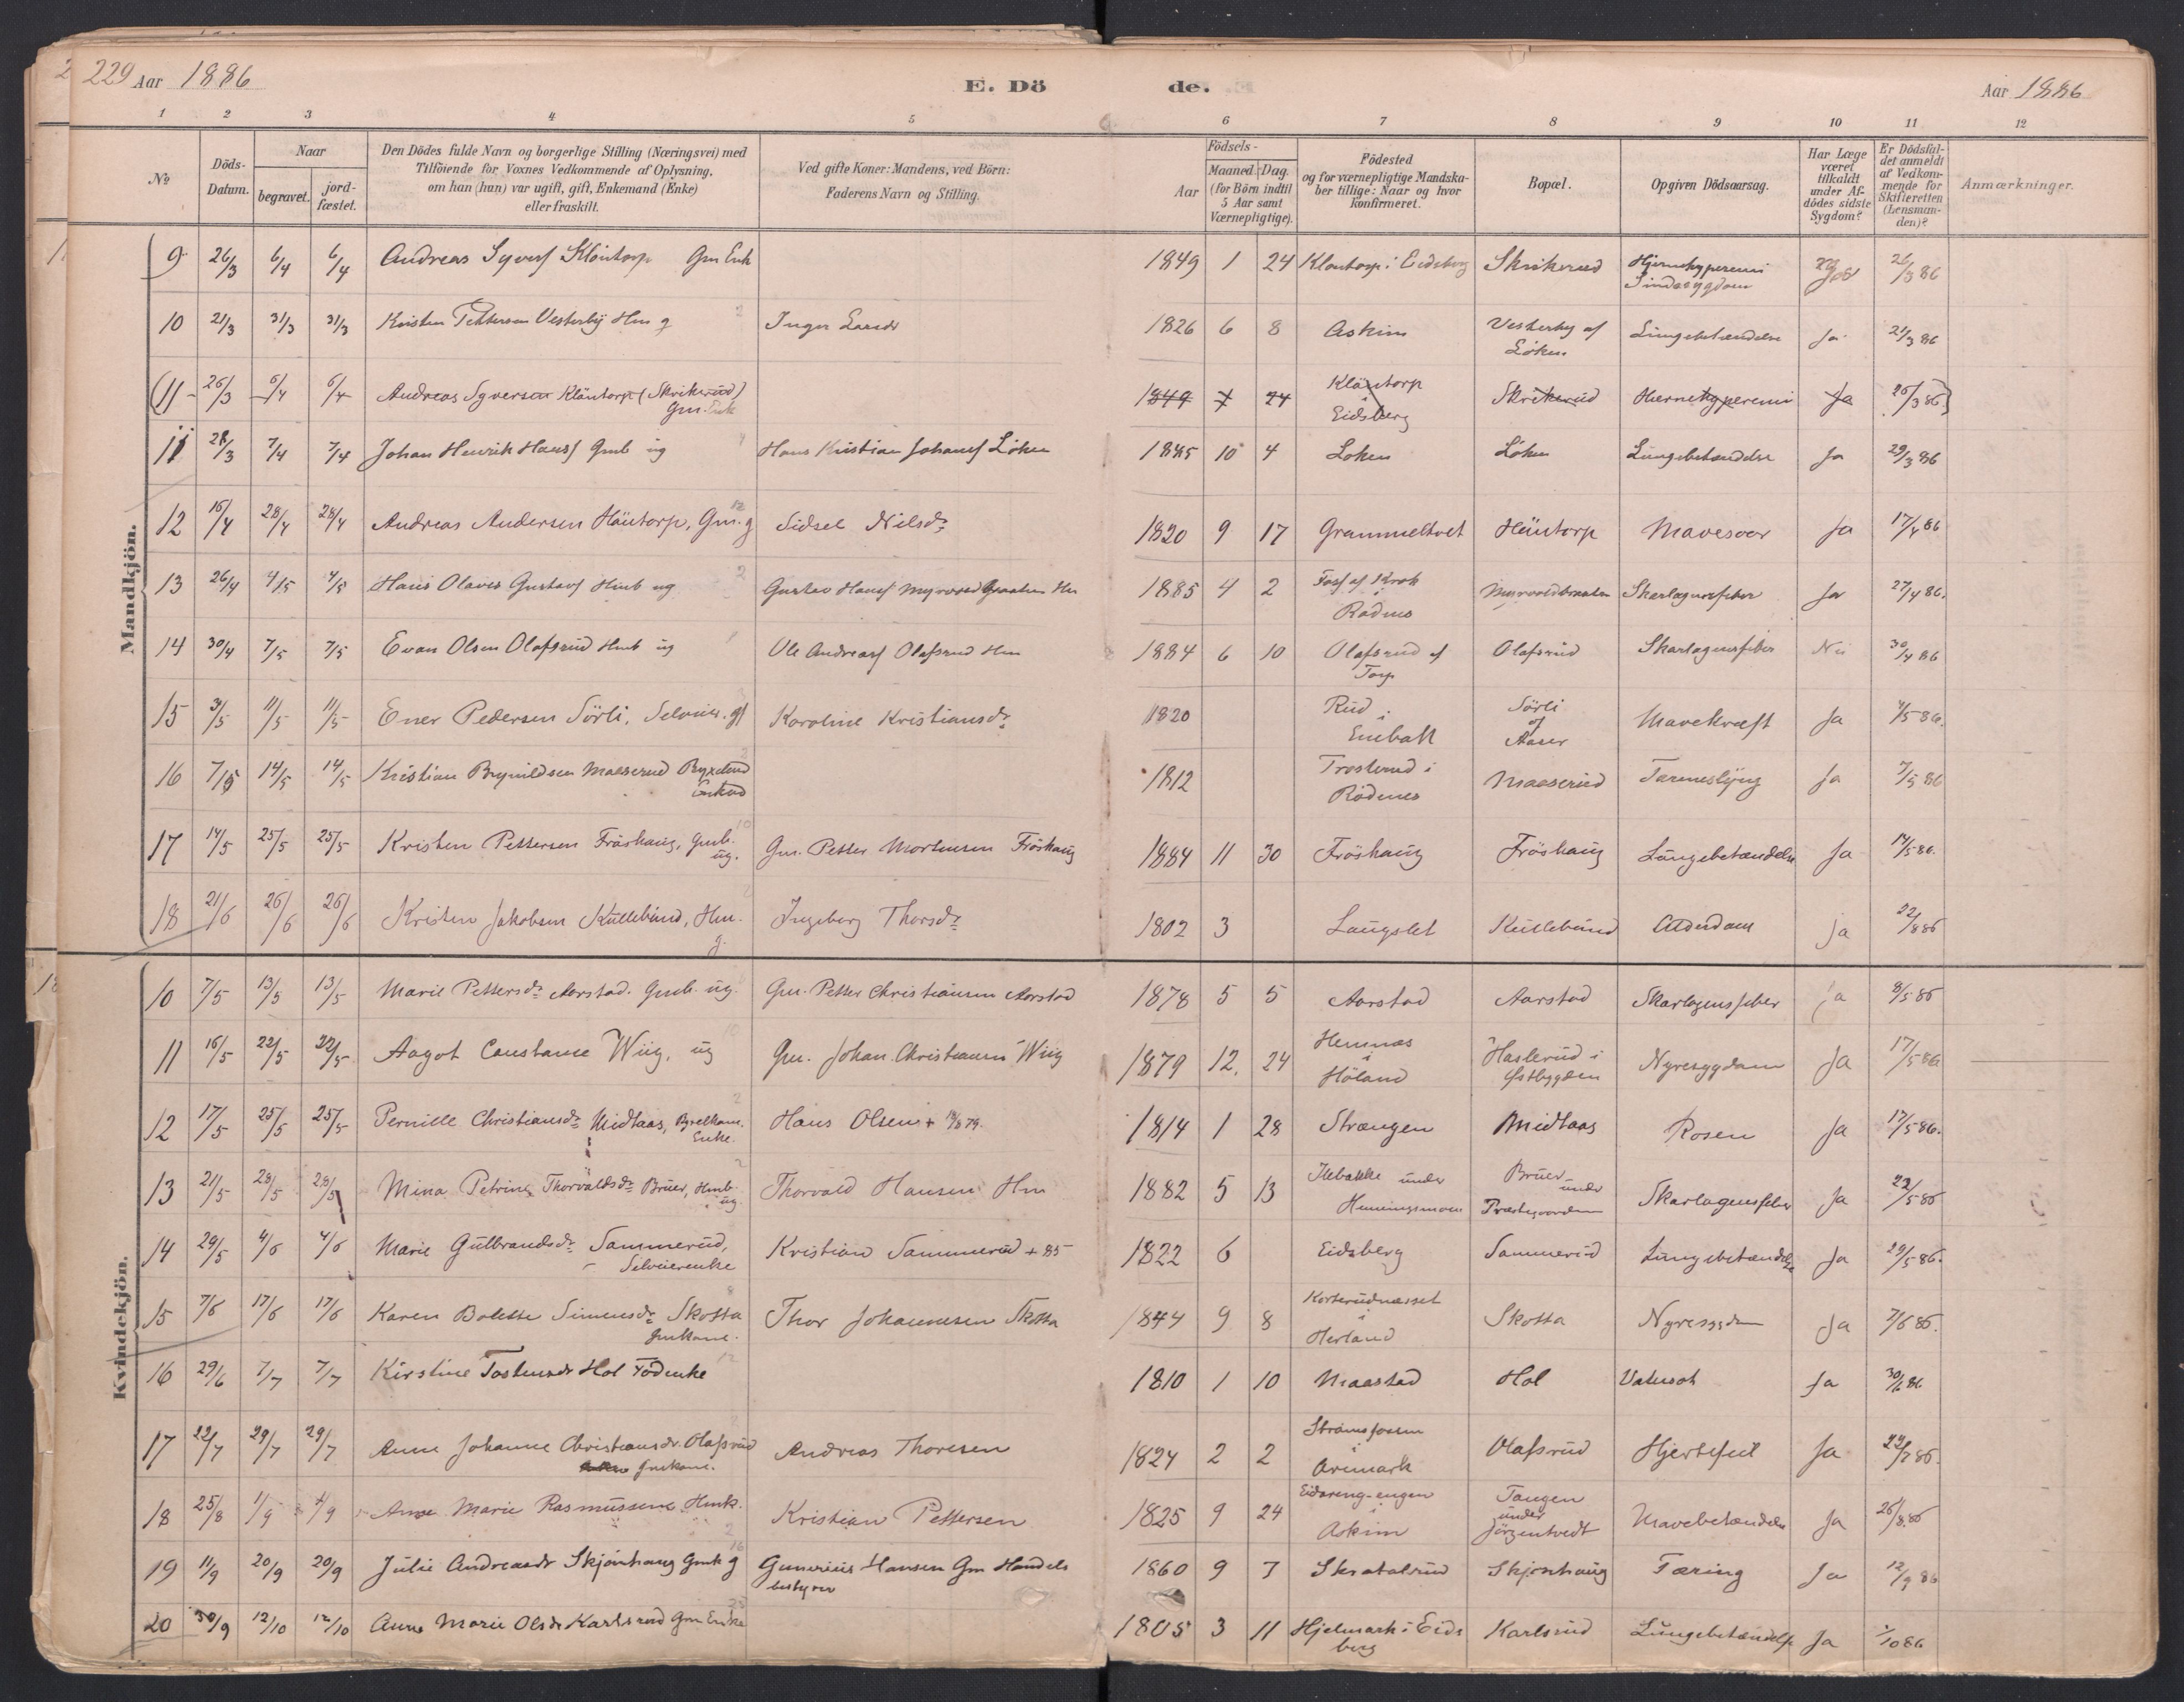 229 Aar 1886
E. Dö de.
Aar 1886
1 2 3 4 5 6 7 8 9 10 11 12
No
Döds-Datum.
Naar begravet. jordfæstet.
Den Dödes fulde Navn og borgerlige Stilling (Næringsvei) med
Tilföiende for Voxnes Vedkommende af Oplysning,
om han (hun) var ugift, gift, Enkemand (Enke)
eller fraskilt.
Ved gifte Koner: Mandens, ved Börn:
Faderens Navn og Stilling.
Födsels-
Aar
Maaned. Dag.
(for Börn indtil
5 Aar samt
Værnepligtige).
Födested
og for værnepligtige Mandska-
ber tillige: Naar og hvor
konfirmeret.
Bopæl.
Opgiven Dödsaarsag.
Har Læge
været
tilkaldt
under Af-
dödes sidste
Sygdom?
Er Dödsfal-
det anmeldt
af Vedkom-
mende for
Skifteretten
(Lensman-
den)?
Anmærkninger.
Mandkjön.
9 26/3 6/4 6/4 Andreas Syvers Kläntorp Gm Enk 1849 1 24 Kläntorp i Eidsberg Skrikerud Hjernehyperemi Sindssygdom 26/3 86
10 21/3 31/3 31/3 Kristen Pettersen Vesterby Hm g Inger Larsdr 1826 6 8 Askim Vesterby af Löken Lungebetændelse Ja 21/3 86
(11 26/3 6/4 6/4 Andreas Syversen Kläntorp (Skrikerud) Gm. Enk 1849 1 24 Kläntorp i Eidsberg Skrikerud Hjernehyperemi Ja 26/3 86)
11 28/3 7/4 7/4 Johan Henrik Hans Gmb ug Hans Kristian Johans Löken 1885 10 4 Löken Löken Lungebetændelse Ja 29/3 86
12 16/4 28/4 28/4 Andreas Andersen Häntorp, Gm. g Sidsel Nilsdr 1820 9 17 Grammeltvet Häntorp Mavesaar Ja 17/4 86
13 26/4 4/5 4/5 Hans Olaves Gustavs Hmb ug Gustav Hans Myrvoldbraaten Hm 1885 4 2 Foss af Krok i Rödnes Myrvoldbraaten Skarlagensfeber Ja 27/4 86.
14 30/4 7/5 7/5 Evan Olsen Olafsrud Hmb ug Ole Andreas Olafsrud Hm 1884 6 10 Olafsrud af Torp Olafsrud Skarlagensfeber Nei 30/4 86
15 3/5 11/5 11/5 Ener Pedersen Sörli, Selveier. gf Karoline Kristiansdr 1820 Rud i Enebak Sörli af Aaser Mavekræft Ja 4/5 86.
16 7/5 14/5 14/5 Kristian Brynildsen Maaserud Enkmd 1812 Trosterud i Rödenes Maaserud Tarmeslyng Ja 7/5 86
17 14/5 25/5 25/5 Kristen Pettersen Fröshaug, Gmb. ug. Gm. Petter Mortensen Fröshaug 1884 11 30 Fröshaug Fröshaug Lungebetændelse Ja 14/5 86.
18 21/6 26/6 26/6 Kristen Jakobsen Kullebund, Hm. g. Ingeborg Thorsdr 1802 3 Laugslet Kullebund Alderdom ja 22/6 86
Kvindekjön.
10 7/5 13/5 13/5 Marie Pettersdr Aarstad. Gmb. ug. Gm. Petter Christiansen Aarstad 1878 5 5 Aarstad Aarstad Skarlagensfeber ja 8/5 86
11 16/5 22/5 22/5 Aagot Constance Wiig, ug Gm. Johan Christiansen Wiig 1879 12. 24 Hemnæs i Höland Haslerud i Østbygden Nyresygdom Ja 17/5 86
12 17/5 25/5 25/5 Pernille Christiansdr Midtaas, Enke. Hans Olsen + 79. 1814 1 28 Strængen Midtaas Rosen Ja 17/5 86.
13 21/5 28/5 28/5 Mina Petrine Thorvaldsdr Bruer, Hmb. ug Thorvald Hansen Hm 1882 5 13 Ilebakke under Henningsmoen Bruer under Præstegaarden Skarlagensfeber Ja 22/5 86
14 29/5 4/6 4/6 Marie Gulbrandsdr Sammerud, Selveierenke Kristian Sammerud + 85 1822 6 Eidsberg Sammerud Lungebetændelse Ja 29/5 86.
15 7/6 17/6 17/6 Karen Bolette Simensdr Skotta Gmkone. Thor Johannesen Skotta 1844 9 8 Korterudnæsset i Herland Skotta Nyresygdm Ja 7/6 86.
16 29/6 7/7 7/7 Kirstine Tostensdr Hol Födenke 1810 1 10 Maastad Hol Vatersot Ja 30/6 86
17 22/7 29/7 29/7 Anne Johanne Christiansdr. Olafsrud Gmkone. Andreas Thoresen 1824 2 2 Strömsfossen i Aremark Olafsrud Hjertefeil Ja 22/7 86.
18 25/8 1/9 1/9 Anne Marie Rasmussen Hmk. Kristian Pettersen 1825 9 24 Eidareng-engen i Askim Tangen under Jörgentvedt Mavebetændelse Ja 26/8 86
19 11/9 20/9 20/9 Julie Andreasdr Skjönhaug Gmk g Gunerius Hansen Gm Handels bestyrer 1860 9 7 Skratalsrud Skjönhaug Tæring Ja 12/9 86
20 30/9 12/10 12/10 Anne Marie Olsdr Karlsrud Gm Enke 1805 3 11 Hjelmark i Eids berg Karlsrud Lungebetændelse Ja 1/10 86